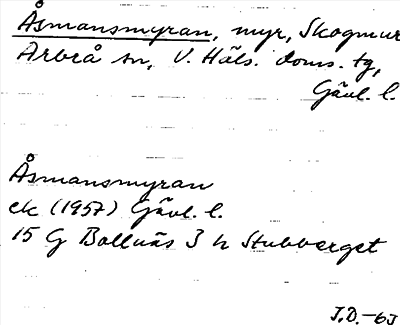 Åsmansmyran, myr, Skogmur
Arbrå sn, V. Häls. doms. tg,
Gävl. l.
Åsmansmyran
ek (1957) Gävl. l.
15 G Bollnäs 3 h Stubberget
J.D.-63